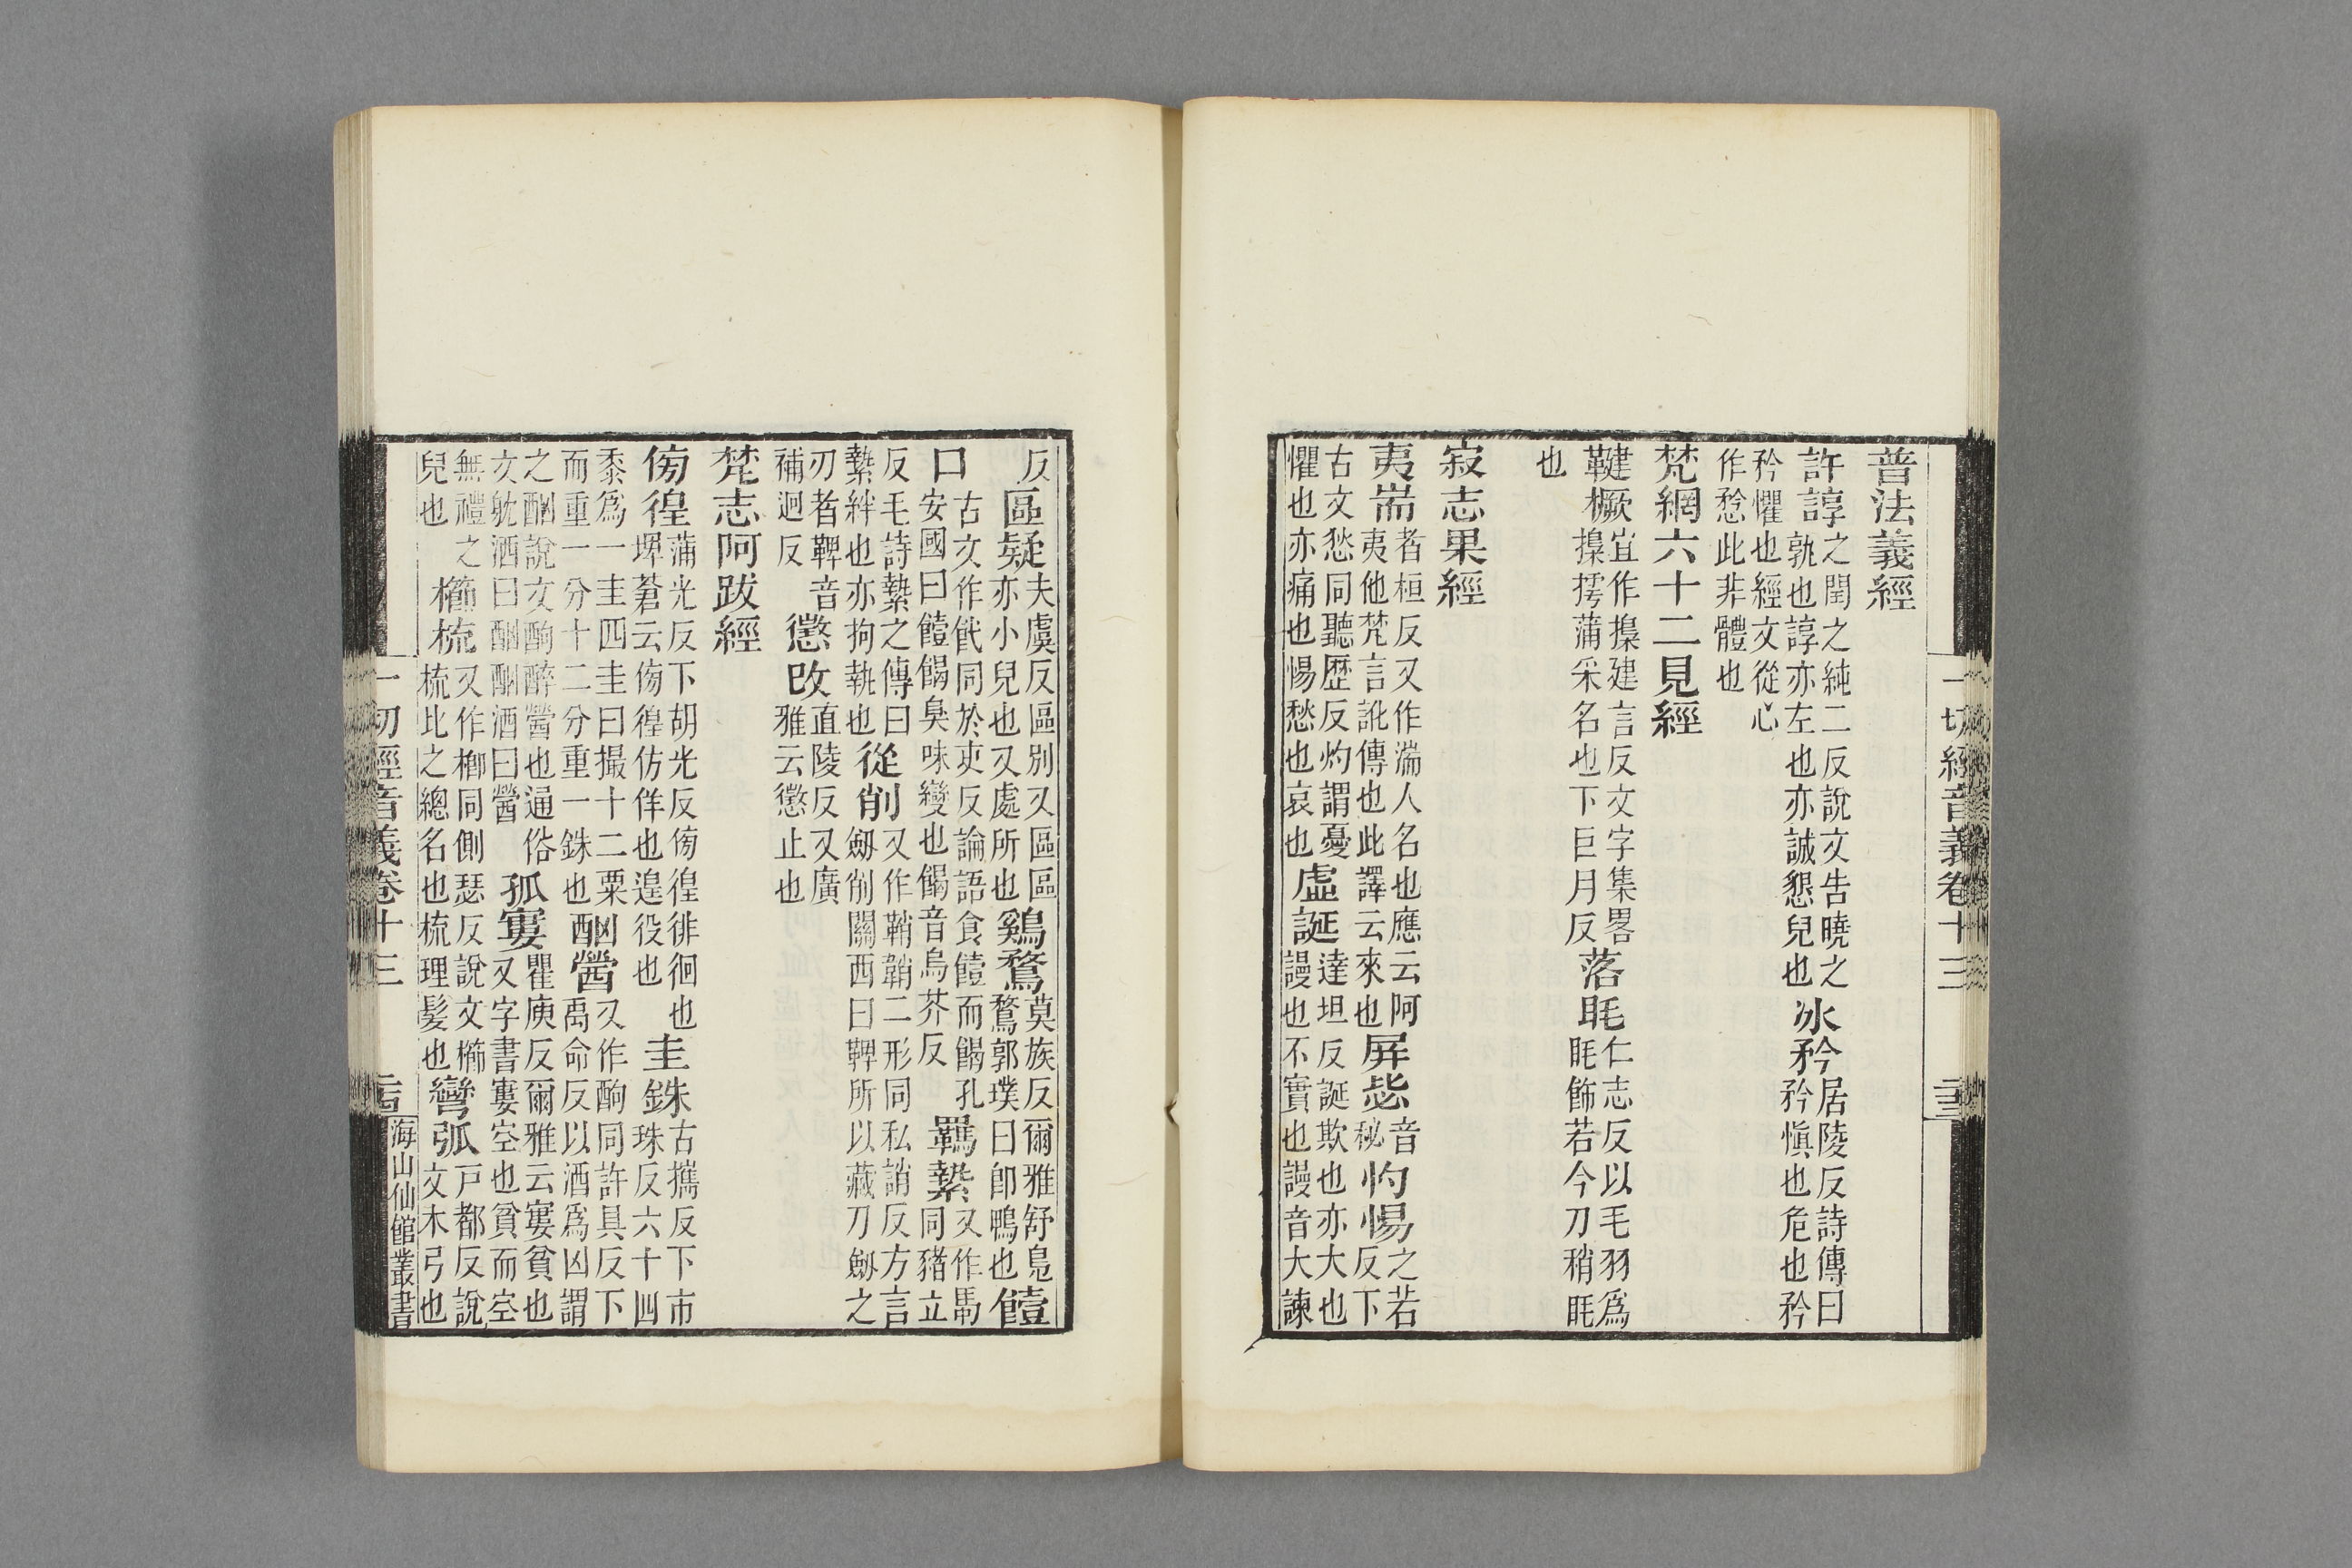 一切經音義卷十三
普法義經
許諄之閏之純二反說文告曉之孰也諄亦左也亦誠懇皃也氷矜居陵反詩傳曰矜愼也危也矜
矜懼也經文從心作惗此非體也
梵網六十二見經
鞬橛宜作㨶建言反文字集畧㨶摴蒲采名也下巨月反落毦仁志反以毛羽爲毦飾若今刀稍毦
也
寂志果經
夷耑者桓反又作湍人名也應云阿夷他梵言訛傳也此譯云來也屏毖音秘灼惕之若反下
古文愁同聽歷反灼謂憂懼也亦痛也惕愁也哀也虛誕達坦反誕欺也亦大也謾也不實也謾音大諫
反區疑夫虞反區別又區區亦小兒也又處所也鷄鶩莫族反爾雅舒鳧鶩郭璞曰卽鴨也饐
口古文作同於吏反論語食饐而餲孔安國曰饐餲臭味變也餲音烏芥反羈縶又作馽同豬立
反毛詩縶之傳曰縶絆也亦拘執也從削又作鞘韒二形同私誚反方言劒削關西曰鞞所以藏刀劒之
刃者鞞音補迥反懲改直陵反又廣雅云懲止也
梵志阿跋經
傍徨蒲光反下胡光反傍徨徘徊也埤蒼云傍徨仿佯也遑役也圭銖古攜反下市珠反六十四
黍爲一圭四圭曰撮十二粟而重一分十二分重一銖也酗醟又作酌同許具反下禹命反以酒爲凶謂
之酗說文酌醉醟也通俗文躭酒曰酗酗酒曰醟孤寠瞿庾反爾雅云寠貧也又字書寠空也貧而空
無禮之皃也櫛梳又作楖同側瑟反說文櫛梳比之總名也梳理髮也彎弧戶都反說文木弓也
一切經音義卷十三
海山仙館叢書